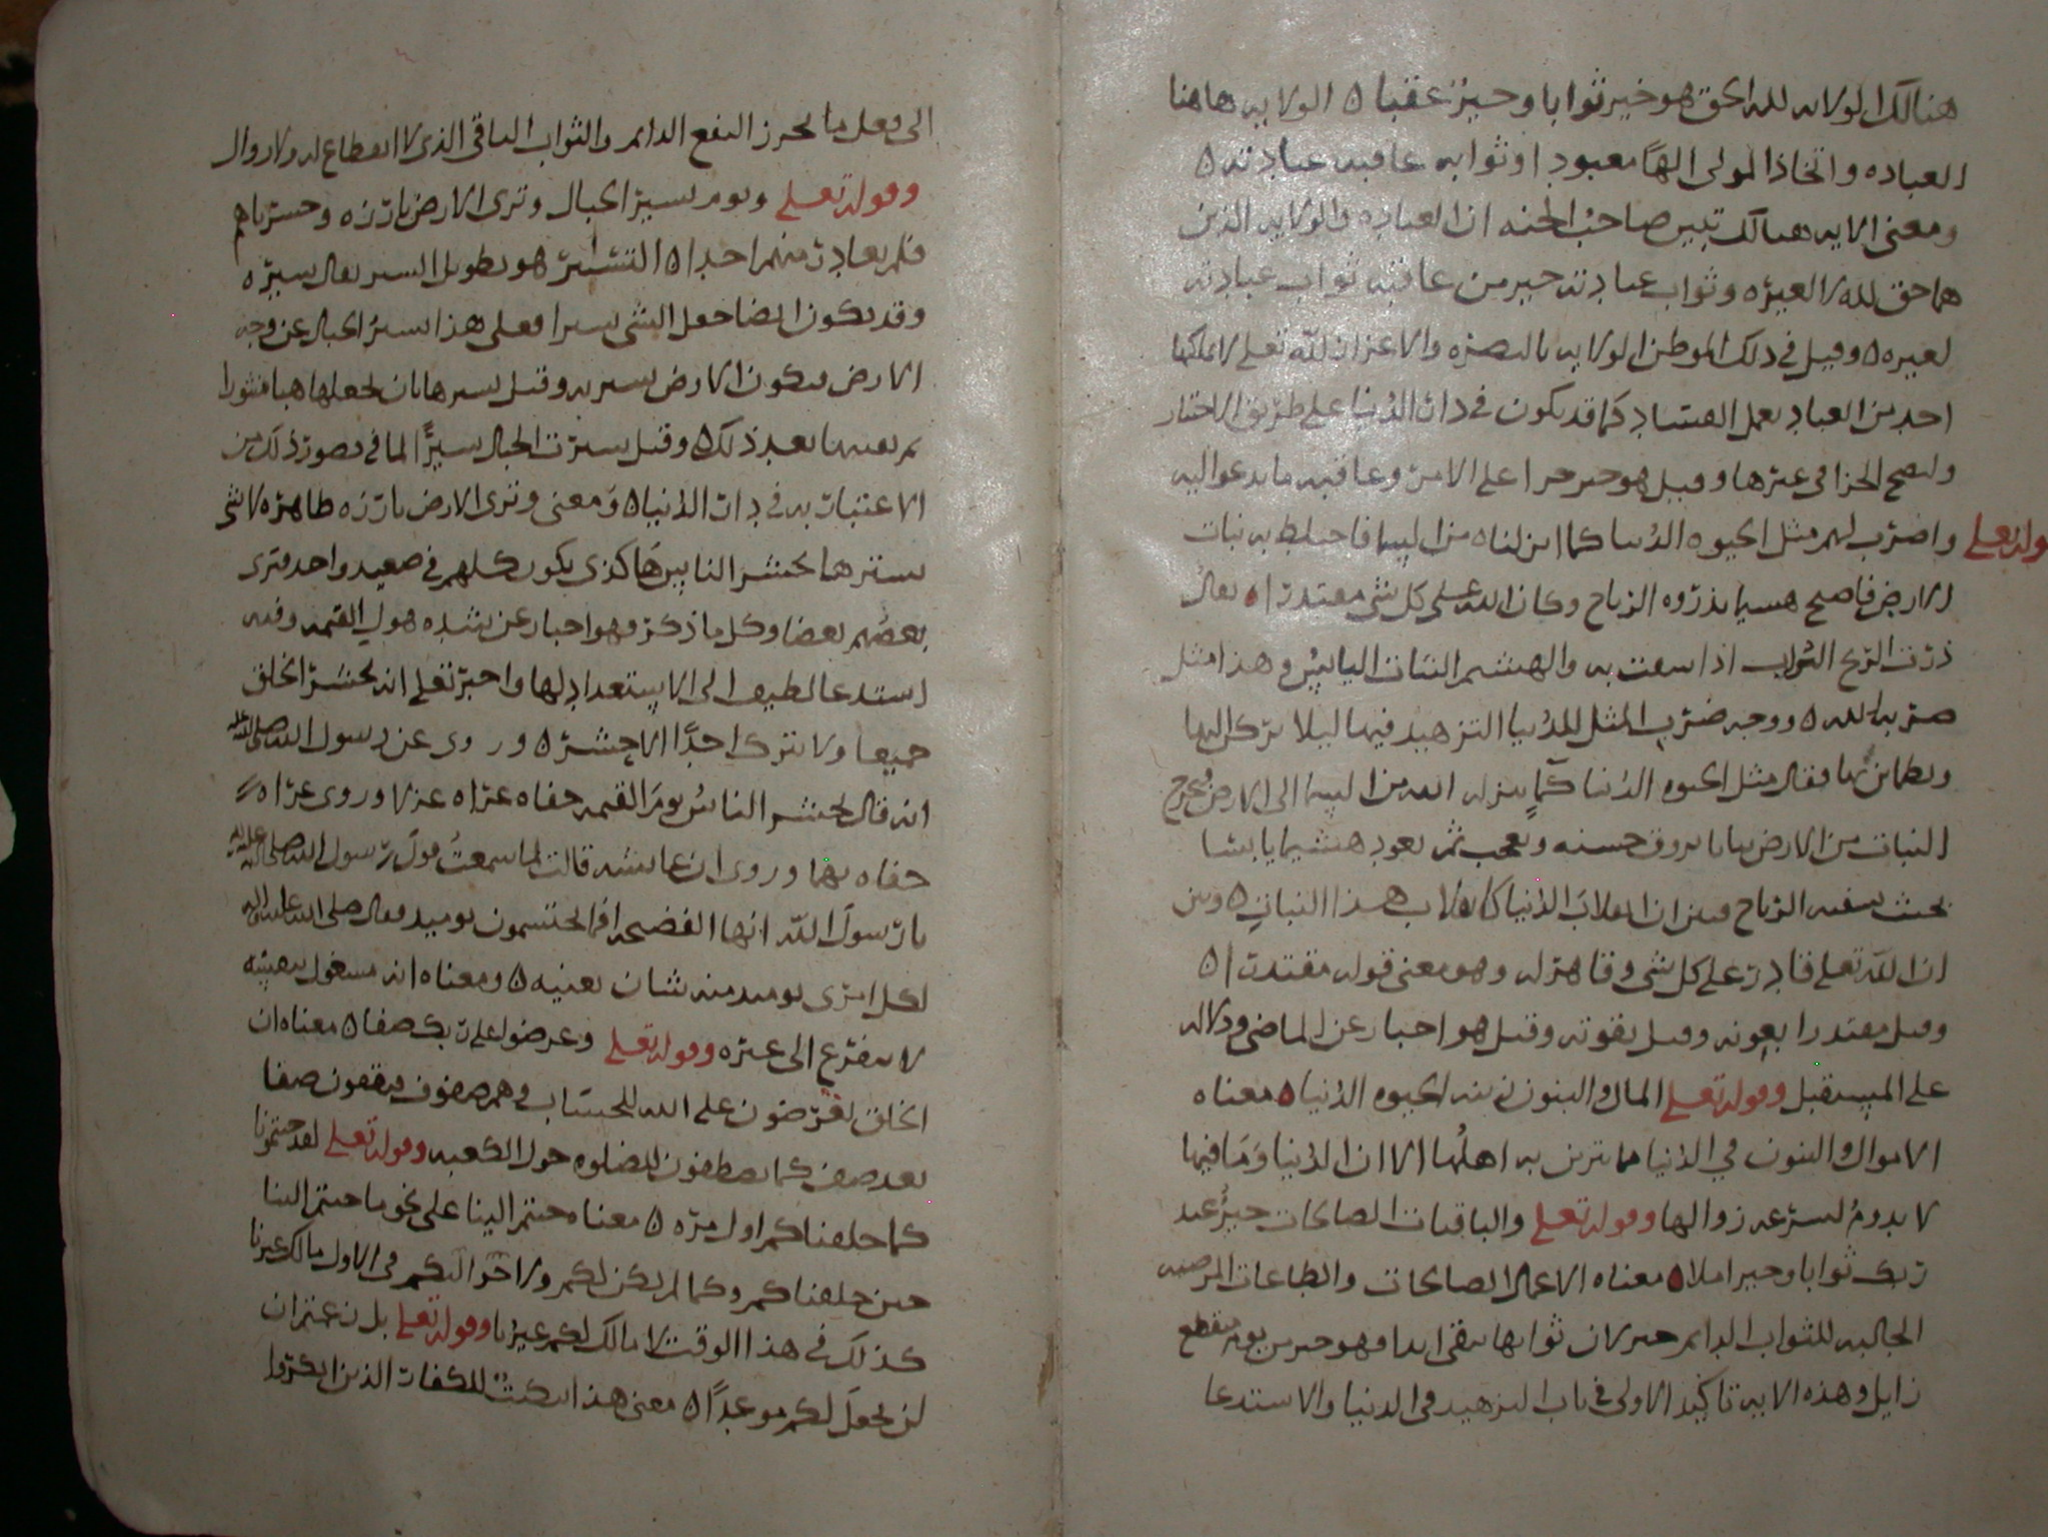 هنالك الولايه لله الحق هو خير ثوابا وخير عقبا ٥ الولايه هاهنا
العباده واتخاذ المولى الها معبودا وثوابه عاقبه عبادته ٥
ومعنى الايه هنالك تبين صاحب الجنه ان العباده والولايه الذين
هما حق لله لا لغيره وثواب عبادته خير من عاقبه ثواب عبادته
لغيره ٥ وقيل في ذلك الموطن الولايه بالنصره والاعزاز لله تعلى لا يملكها
احد من العباد بعمل الفساد كما قد يكون في دار الدنيا على طريق الاختيار
وليصح الجزا في غيرها وقيل هو خير جزا على الامر وعاقبه ما يدعو اليه
وقوله تعلى واضرب لهم مثل الحيوه الدنيا كما انزلناه من السما فاختلط به نبات
الارض فاصبح هشيما تذروه الرياح وكان الله على كل شى مقتدرا ٥ يقال
ذرت الريح التراب اذا سفت به والهشيم النبات اليابس وهذا مثل
ضربه الله ٥ ووجه ضرب المثل للدنيا التزهيد فيها ليلا يركن اليها
ويطماين بها فقال مثل الحيوه الدنيا كما ينزله الله من السما الى الارض فيخرج
النبات من الارض نباتا يروق حسنه ويعجب ثم يعود هشيما يابسا
بحيث تسفيه الرياح فبين ان انقلاب الدنيا كانقلاب هذا النبات ٥ وبين
ان الله تعلى قادر على كل شى وقاهر له وهو معنى قوله مقتدرا ٥
وقيل مقتدرا بعونه وقيل بقوته وقيل هو اخبار عن الماضي ودلاله
على المستقبل وقوله تعلى المال والبنون زينه الحيوه الدنيا ٥ معناه
الاموال والبنون في الدنيا مما يتزين به اهلها الا ان الدنيا وما فيها
لا يدوم لسرعه زوالها وقوله تعلى والباقيات الصالحات خير عند
ربك ثوابا وخير املا ٥ معناه الاعمال الصالحات والطاعات المرضيه
الجالبه للثواب الدايم خير لان ثوابها يبقى ابدا فهو خير من يوم منقطع
زايل وهذه الايه تاكيد الاولى في باب التزهيد في الدنيا والاستدعا
الى فعل ما يحرز النفع الدايم والثواب الباقي الذي لا انقطاع له ولا زوال
وقوله تعلى ويوم تسير الجبال وترى الارض بارزه وحشرناهم
فلم نغادر منهم احدا ٥ التسيير هو تطويل السير يقال سيره
وقد يكون ايضا جعل الشى سيرا فعلى هذا تسير الجبال عن وجه
الارض فتكون الارض تسير به وقيل تسيرها بان يجعلها هبا منثورا
ثم يغيبها بعد ذلك ٥ وقيل سيرت الجبال سيرا لما في تصور ذلك من
الاعتبار به في دار الدنيا ٥ ومعنى وترى الارض بارزه ظاهره لا شى
يسترها يحشر الناس كذى يكون كلهم في صعيد واحد فترى
بعضهم بعضا وكل ما ذكر فهو اخبار عن شده هول القيمه وفيه
استدعا لطيف الى الاستعداد لها واخبر تعلى انه يحشر الخلق
جميعا ولا يترك احدا الا حشره ٥ وروى عن رسول الله صلى الله عليه
انه قال يحشر الناس يوم القيمه حفاه عراه عزلا وروى عراه
حفاه بهما وروى ان عايشه قالت لما سمعت قول رسول الله صلى الله عليه واله
يا رسول الله انها الفضيحه افما يحتشمون يوميذ فقال صلى الله عليه واله
لكل امرى يوميذ منهم شان يغنيه ٥ ومعناه انه مشغول بنفسه
لا يتفرغ الى غيره وقوله تعلى وعرضوا على ربك صفا ٥ معناه ان
الخلق يعرضون على الله للحساب وهم صفوف فيقفون صفا
بعد صف كما يصطفون للصلوه حول الكعبه وقوله تعلى لقد جئتمونا
كما خلقناكم اول مره ٥ معناه جئتم الينا على نحو ما جئتم الينا
حين خلقناكم وكما لم يكن لكم ولاحوالكم في الاول مالك غيرنا
كذلك في هذا الوقت لا مالك لكم غيرنا وقوله تعلى بل زعمتم ان
لن نجعل لكم موعدا ٥ معنى هذا التبكيت للكفار الذين انكروا